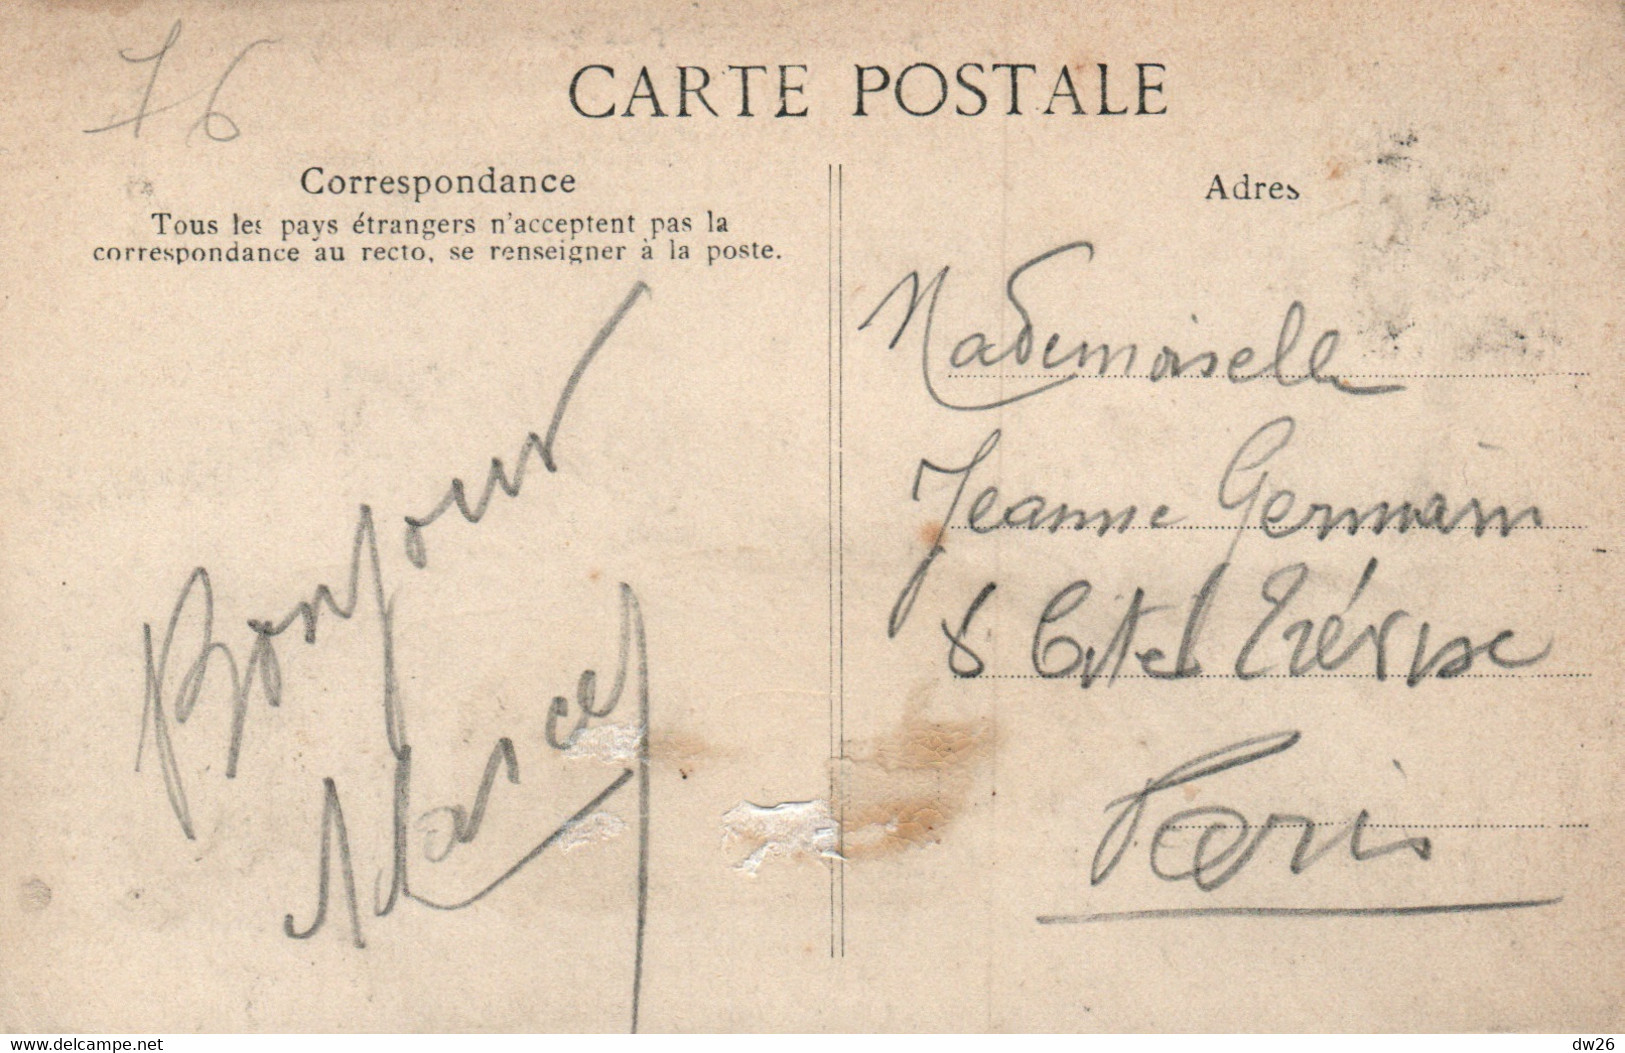 76
CARTE POSTALE
Correspondance
Tous les pays étrangers n'acceptent pas la
correspondance au recto, se renseigner à la poste.
Bonjour
Marcel
Adres
Mademoiselle
Jeanne Germain
8 Cité Trévise
Paris
www.delcampe.net
dw26